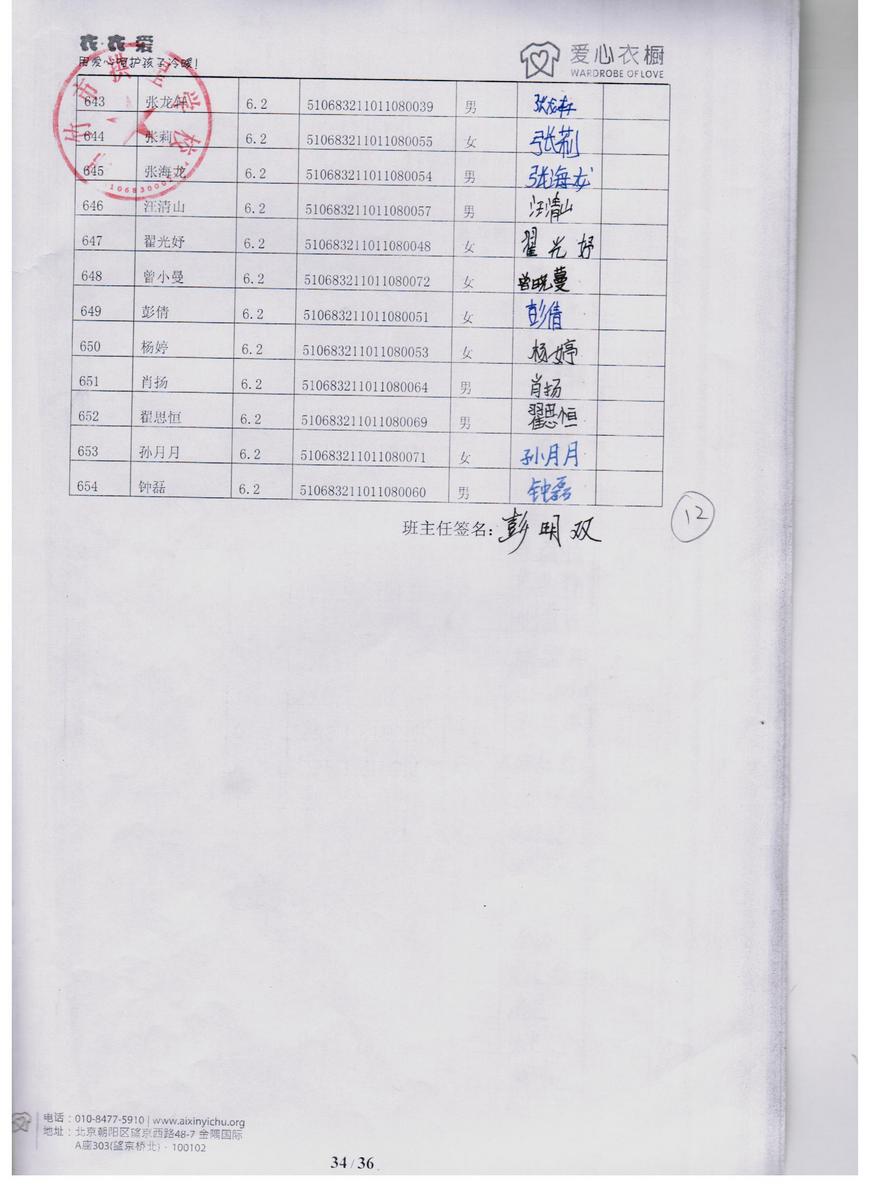 衣·衣·爱
用爱心呵护孩子冷暖!
爱心衣橱
WARDROBE OF LOVE
643 张龙 6.2 510683211011080039 男
644 张莉 6.2 510683211011080055 女 张莉
645 张海龙 6.2 510683211011080054 男 张海龙
646 汪清山 6.2 510683211011080057 男 汪清山
647 翟光妤 6.2 510683211011080048 女 翟光妤
648 曾小曼 6.2 510683211011080072 女 曾晓蔓
649 彭倩 6.2 510683211011080051 女 彭倩
650 杨婷 6.2 510683211011080053 女 杨婷
651 肖扬 6.2 510683211011080064 男 肖扬
652 翟思恒 6.2 510683211011080069 男 翟思恒
653 孙月月 6.2 510683211011080071 女 孙月月
654 钟磊 6.2 510683211011080060 男 钟磊
班主任签名: 彭明双
12
电话:010-8477-5910 | www.aixinyichu.org
地址:北京朝阳区望京西路48-7 金隅国际
A座303(望京桥北)·100102
34 / 36